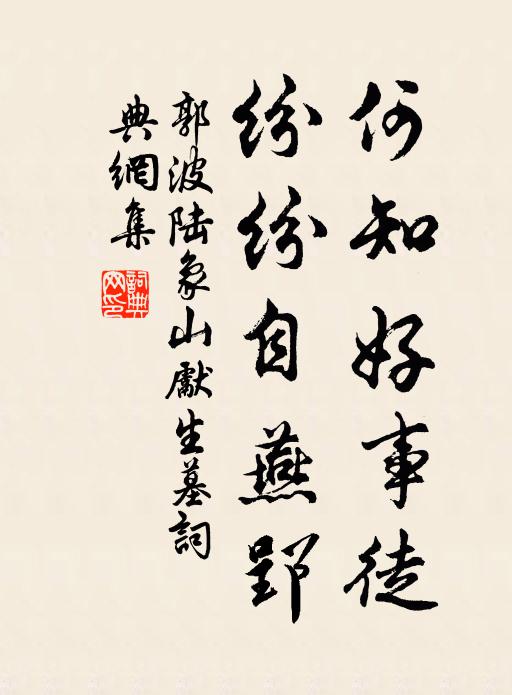 何知好事徒
纷纷自燕郢
郭波陆象山獻生墓詞
典網集
詞典
网印